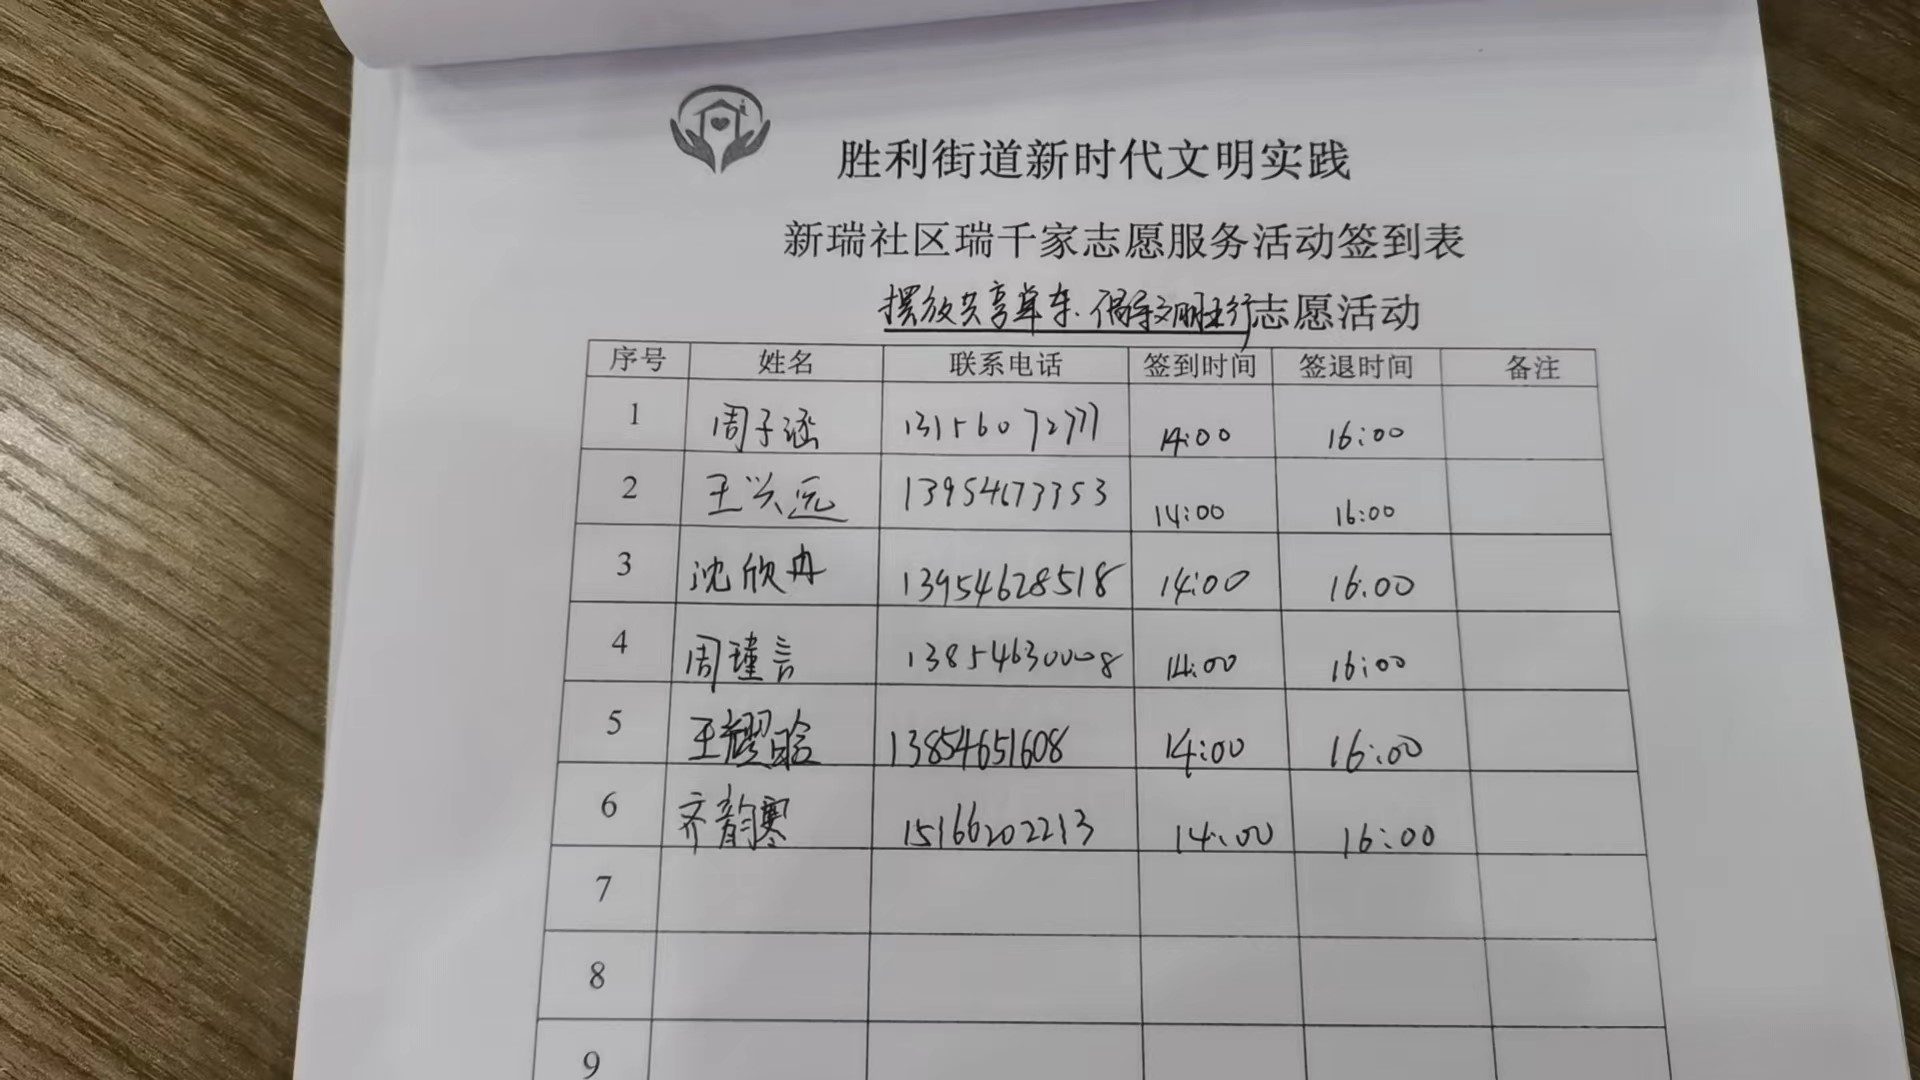 胜利街道新时代文明实践
新瑞社区瑞千家志愿服务活动签到表
摆放共享单车、倡导文明出行志愿活动
序号 姓名 联系电话 签到时间 签退时间 备注
1 周子涵 13156072777 14:00 16:00
2 王兴远 13954673353 14:00 16:00
3 沈欣冉 13954628518 14:00 16:00
4 周瑾言 13854630008 14:00 16:00
5 王耀晗 13854651608 14:00 16:00
6 齐韵寒 15166202213 14:00 16:00
7
8
9